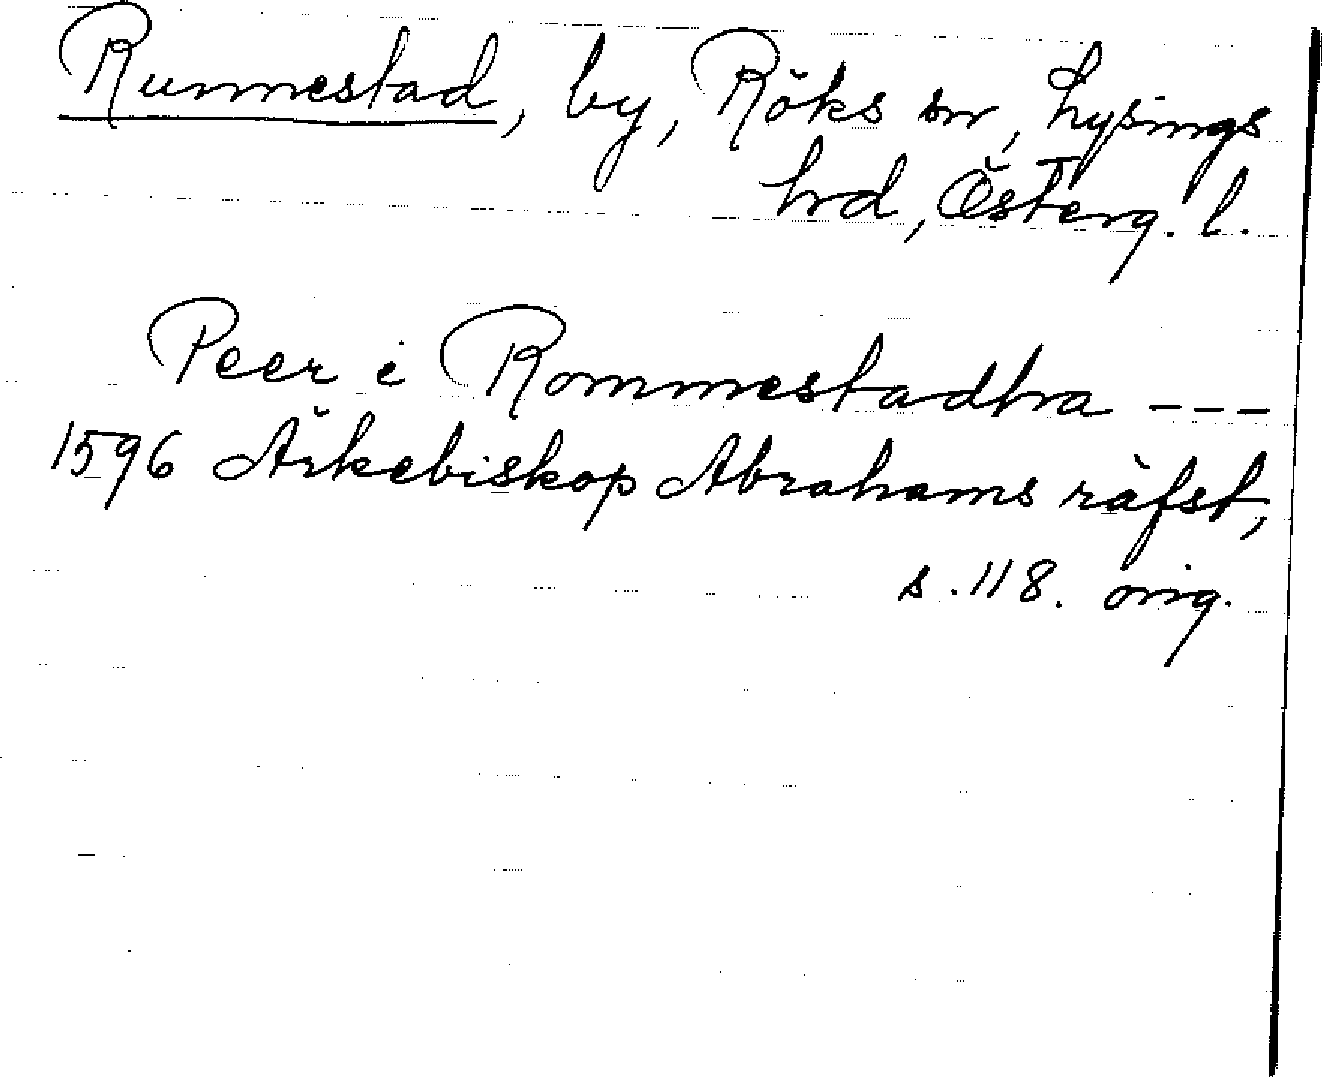 Rummestad, by, Röks sn, Lysings
hd, Österg. l.
Peer i Rommestadhra ---
1596 Ärkebiskop Abrahams räfst,
s. 118. orig.